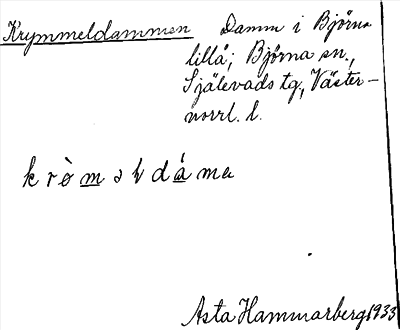 Krymmeldammen Damm i Björn-
lillå; Björna sn.,
Själevads tg, Väster-
norrl. l.
krò̀m
Asta Hammarberg 1933